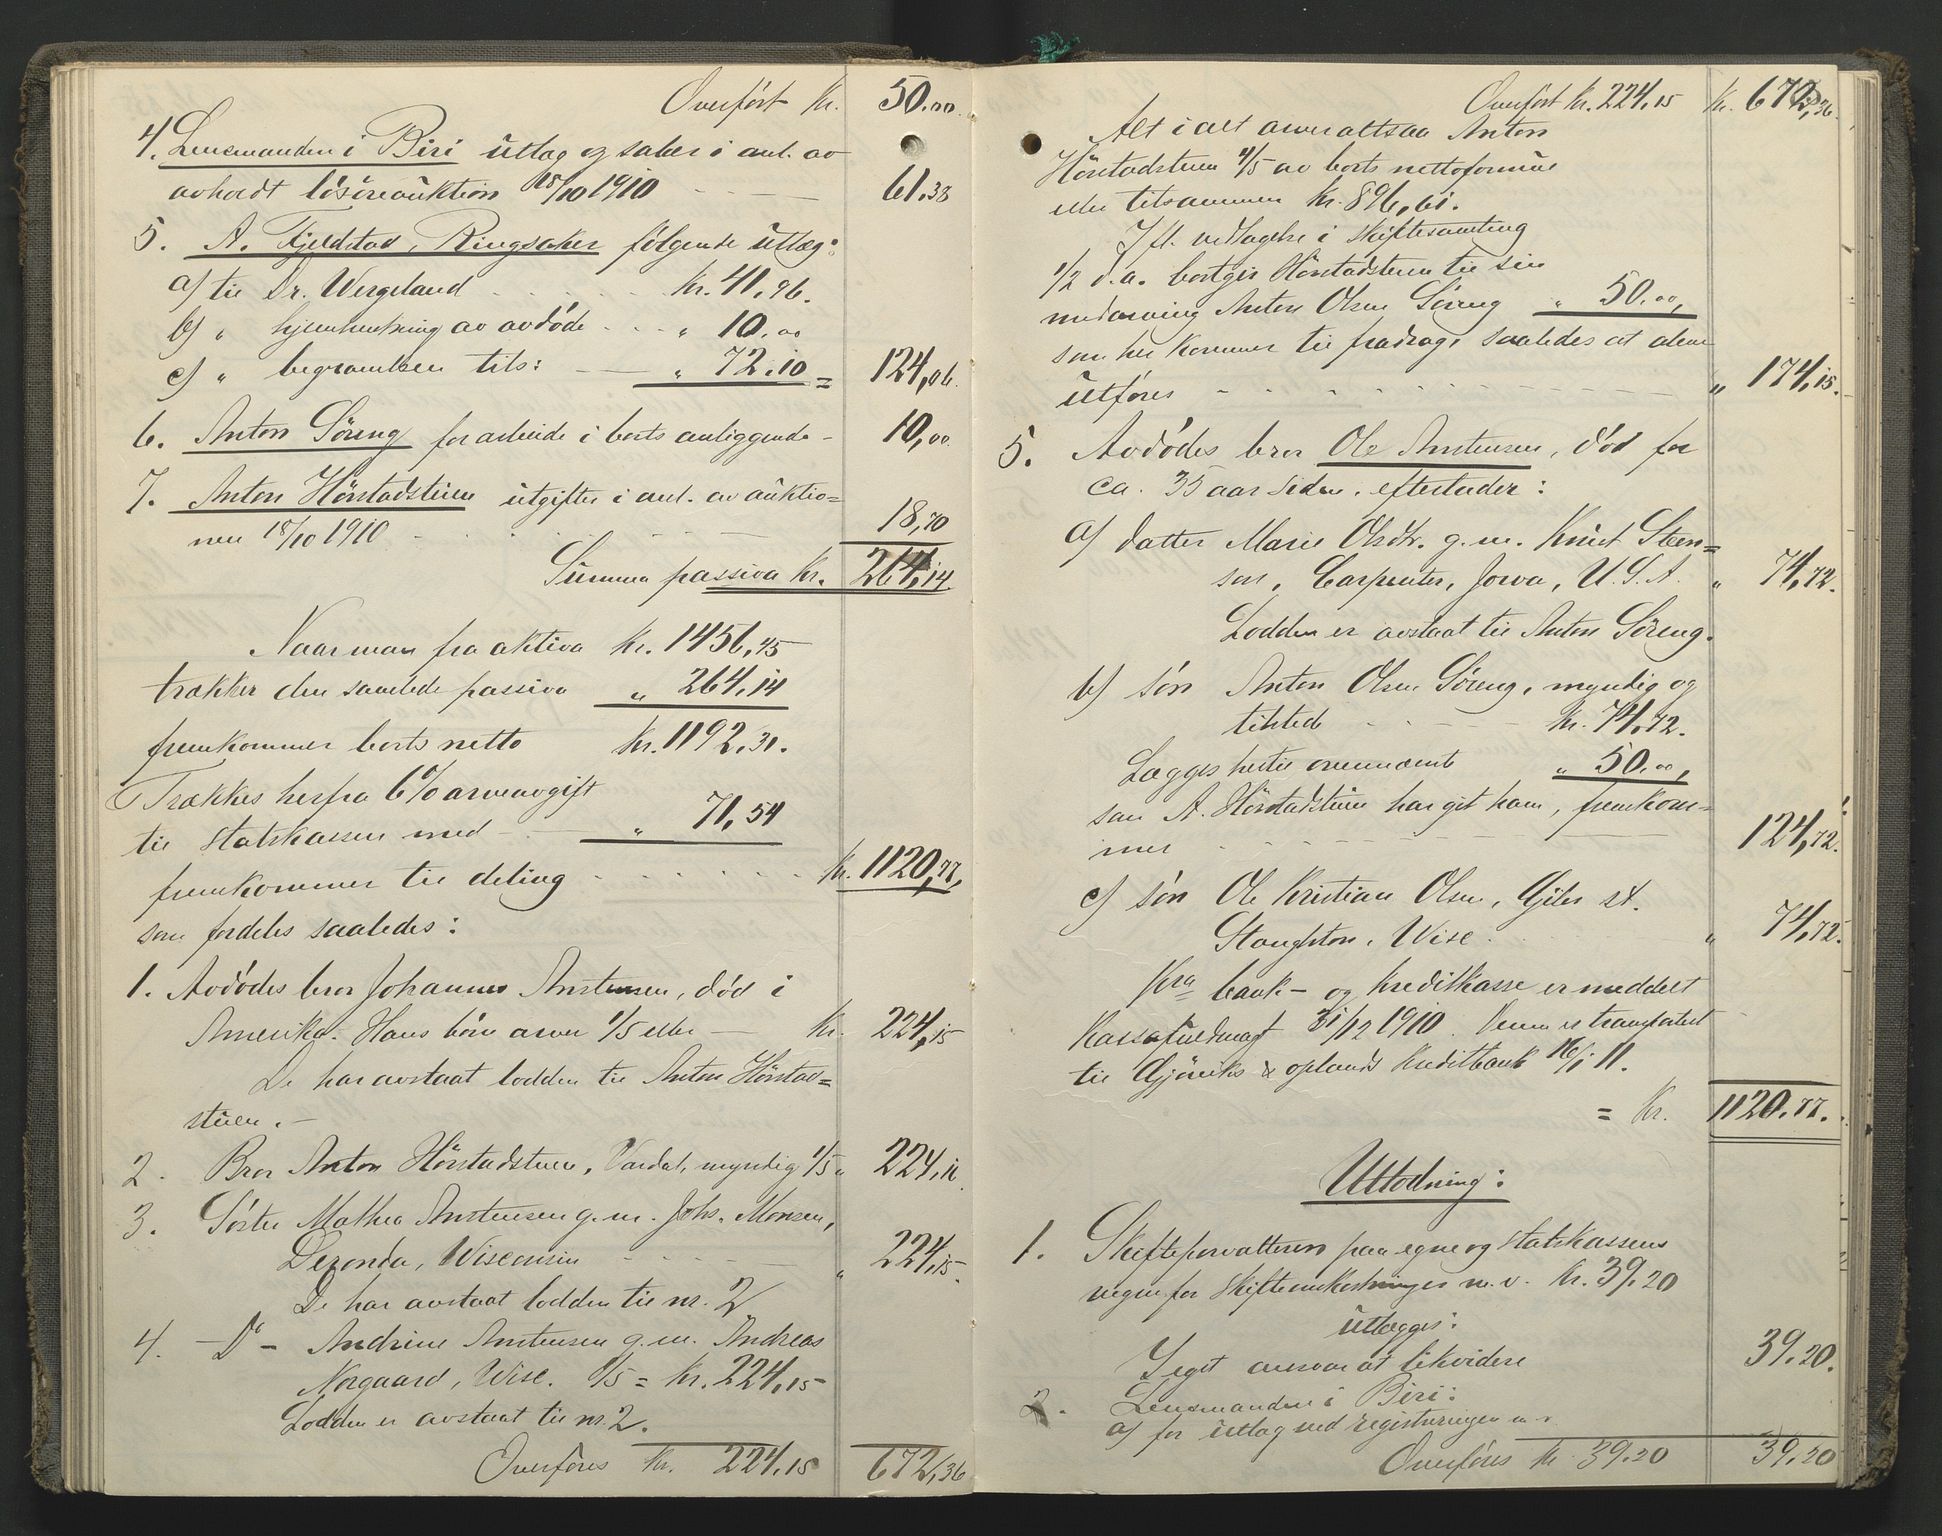 Overført Kr. 50.00.
4. Lensmanden i Biri utlæg og salær i anl. av
avholdt løsøreauktion 18/10 1910 — 61.38
5. A. Fjeldstad, Ringsaker følgende utlæg:
a) til Dr. Wergeland . . . . . kr. 41,96.
b) „ hjemhentning av avdøde . . . „ 10.00
c) „ begravelsen tils: — „ 72.10 = 124,06.
6. Anton Søreng for arbeide i boets anliggende – 10,00.
7. Anton Hørstadstuen utgifter i anl. av auktio=
nen 18/10 1910 . . . . 18,70
Summa passiva kr. 264,14.
Naar man fra aktiva kr. 1456,45
trækker den samlede passiva „ 264,14
fremkommer boets netto kr. 1192,31.
Trækkes herfra 6% arveavgift
til Statskassen med — „ 71,54
fremkommer til deling . . . . . . kr. 1120,77,
som fordeles saaledes:
1. Avdødes bror Johannes Amstensen, død i
Amerika. Hans børn arver 1/5 eller — Kr. 224,15
De har avstaat lodden til Anton Hørstad=
stuen. –
2. Bror Anton Hørstadstuen, Vardal, myndig 1/5 „ 224,15
3. Søster Mathea Amstensen g.m. Johs. Monsen,
Deronda, Wisconsin . . . „ 224,15.
De har avstaat lodden til nr. 2
4. – Do – Andrine Amstensen g.m. Andreas
Norgaard, Wisc. 1/5 = Kr. 224,15
Lodden er avstaat til nr. 2.
Overføres Kr. 224,15 672,36
Overført Kr. 224,15 Kr. 672,36.
Alt i alt arver altsaa Anton
Hørstadstuen 4/5 av boets nettoformue
eller tilsammen kr. 896,61.
Ifl. vedtagelse i skiftesamling
1/2 d.a. bortgir Hørstadstuen til sin
medarving Anton Olsen Søreng „ 50.00,
som her kommer til fradrag, saaledes at alene
utføres . . . . . . „ 174,15.
5. Avdødes bror Ole Amstensen, død for
ca. 35 aar siden, efterlader:
a) datter Marie Olsdtr. g.m. Knut Steen=
son, Carpenter, Jowa, U.S.A. „ 74,72.
Lodden er avstaat til Anton Søreng.
b) søn Anton Olsen Søreng, myndig og
tilsted . . . . Kr. 74,72.
Lægges hertil ovennævnte „ 50.00,
som A. Hørstadstuen har git ham, fremkom=
mer . . . . . . 124,72.
c) søn Ole Kristian Olsen, Giles st.
Stoughton, Wisc. . . . „ 74,72.
Kra bank- og Kreditkasse er meddelt
Kassafuldmagt 31/12 1910. Denne er transportert
til Gjøviks & oplands Kreditbank 16/1 11.
= Kr. 1120.77.
Utlodning:
1. Skifteforvalteren paa egne og statskassens
vegne for skifteomkostninger m.v. Kr. 39,20
utlægges:
I eget ansvar at likvidere 39.20.
2. Lensmanden i Biri:
a) for utlæg ved registreringen m.v.
Overføres Kr. 39.20 39,20